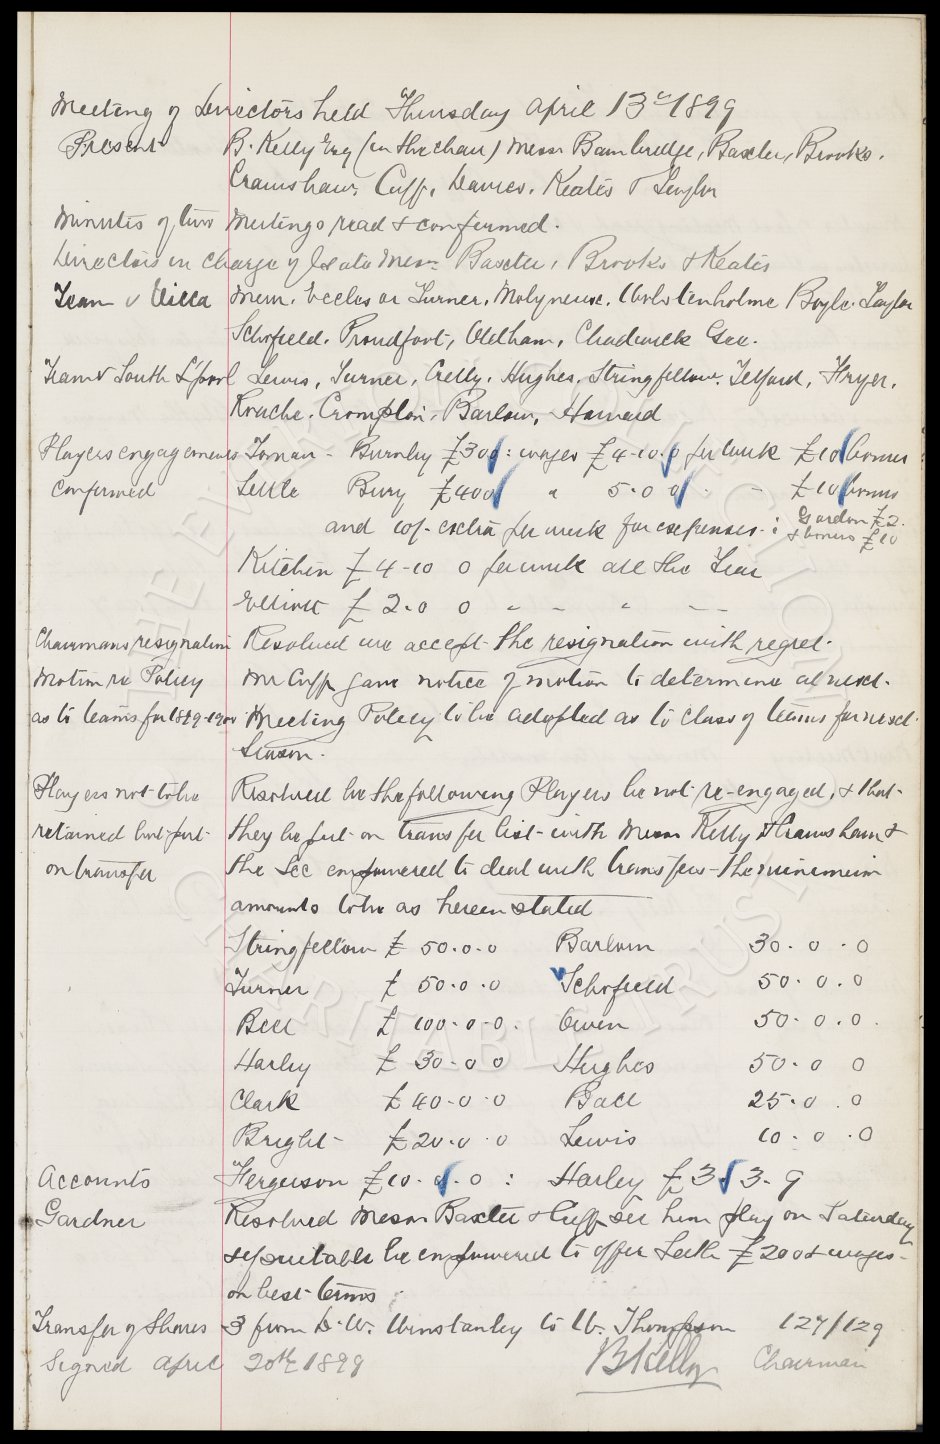 Meeting of Directors held Thursday April 13th 1899
Present B. Kelly Esq (in the chair) Messrs Bainbridge, Baxter, Brooks.
Cranshaw, Cuff, Davies, Keates & Leyler
Minutes of two Meetings read & confirmed.
Directors in Charge of Gate Messrs Baxter, Brooks & Keates
Team v Villa Muir. Eccles or Turner. Molyneux. Wolstenholme Boyle. Taylor
Schofield. Proudfoot, Oldham, Chadwick Gee.
Team v South L'pool Lewis, Turner, Crelly. Hughes. Stringfellow. Telford, Fryer.
Roache. Crompton. Barlow. Howard
Players engagements Toman - Burnley £300: wages £4-10.0 per week £10 bonus
confirmed Settle Bury £400 " 5.0 0 - £10 bonus
and 10/- extra per week for expenses: Gordon £2.
& bonus £10
Kitchen £4-10 0 per week all the Year
Elliott £2.0 0 " - " --
Chairmans resignation Resolved we accept the resignation with regret.
Motion re Policy Mr Cuff gave notice of motion to determine at next
as to teams for 1899-1900 Meeting Policy to be adopted as to class of teams for next
Season.
Players not to be Resolved be the following Players be not re-engaged, & that
retained but put they be put on transfer list with Messrs Kelly & Cranshaw &
on transfer the Sec empowered to deal with transfers - the minimum
amounts to be as herein stated
Stringfellow £50.0.0 Barlow 30.0.0
Turner £50.0.0 Schofield 50.0.0
Bell £100.0.0. Owen 50.0.0.
Harley £30.0 0 Hughes 50.0 0
Clark £40.0.0 Ball 25.0.0
Bright £20.0.0 Lewis 10.0.0
Accounts Ferguson £10.0.0: Harley £3.3.9
Gardner Resolved Messrs Baxter & Cuff see him play on Saturday
if suitable be empowered to offer Leith £200 & wages
on best terms
Transfer of Shares 3 from D.W. Winstanley to W. Thompson 127/129
Signed April 20th 1899 B Kelly Chairman